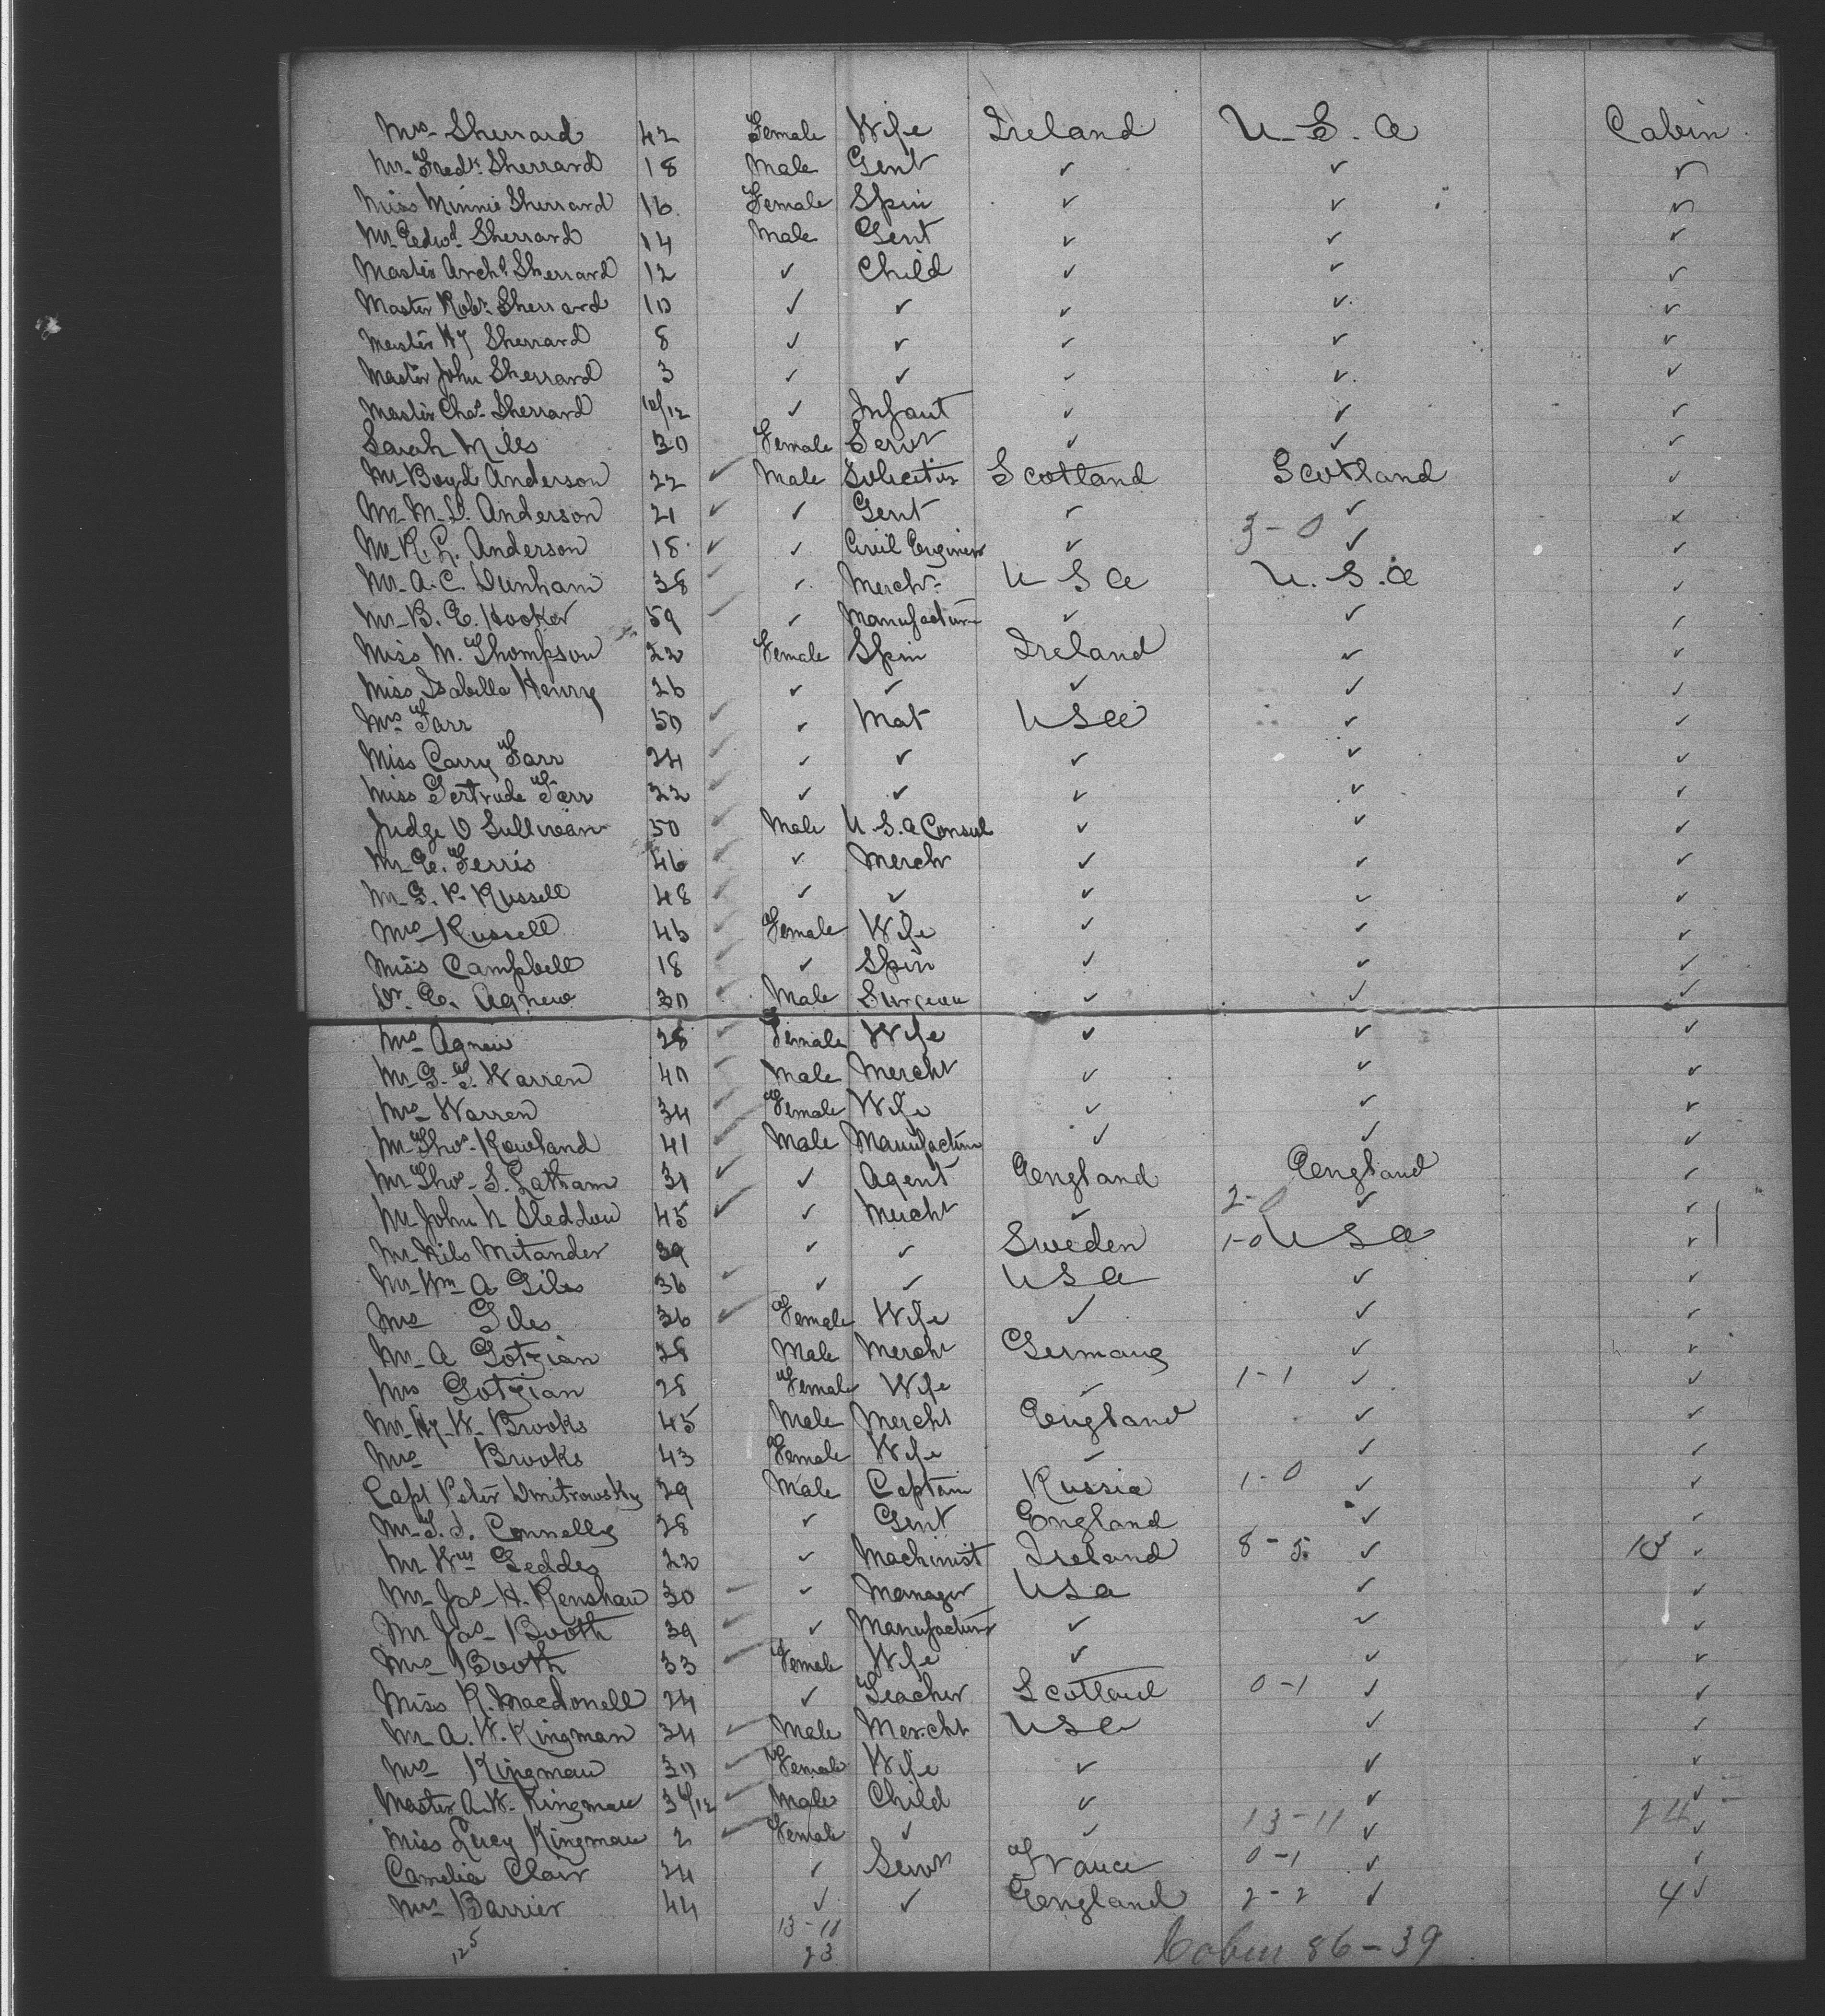 Mrs Sherrard 42 Female Wife Ireland U.S.A Cabin
Mr Fredk Sherrard 18 Male Gent ✓ ✓ ✓
Miss Minnie Sherrard 16 Female Spin ✓ ✓ ✓
Mr Edwd Sherrard 14 Male Gent ✓ ✓ ✓
Master Archd Sherrard 12 ✓ Child ✓ ✓ ✓
Master Robt Sherrard 10 ✓ ✓ ✓ ✓ ✓
Master Hy Sherrard 8 ✓ ✓ ✓ ✓ ✓
Master John Sherrard 3 ✓ ✓ ✓ ✓ ✓
Master Chas Sherrard 10/12 ✓ Infant ✓ ✓ ✓
Sarah Miles 30 Female Servt ✓ ✓ ✓
Mr Boyd Anderson 22 ✓ Male Solicitor Scotland Scotland ✓
Mr M. D. Anderson 21 ✓ ✓ Gent ✓ ✓ ✓
Mr R. L. Anderson 18 ✓ ✓ Civil Engineer ✓ 3-0 ✓ ✓
Mr A. C. Dunham 38 ✓ ✓ Mercht U S A U.S.A ✓
Mr B. E. Hooker 59 ✓ ✓ Manufacturer ✓ ✓ ✓
Miss M. Thompson 22 Female Spin Ireland ✓ ✓
Miss Isabella Henry 26 ✓ ✓ ✓ ✓ ✓
Mrs Farr 50 ✓ ✓ Mat U S A ✓ ✓
Miss Carry Farr 24 ✓ ✓ ✓ ✓ ✓ ✓
Miss Gertrude Farr 22 ✓ ✓ ✓ ✓ ✓ ✓
Judge O Sullivan 50 ✓ Male U.S.A Consul ✓ ✓ ✓
Mr E. Ferris 46 ✓ ✓ Mercht ✓ ✓ ✓
Mr G. P. Russell 48 ✓ ✓ ✓ ✓ ✓ ✓
Mrs Russell 46 ✓ Female Wife ✓ ✓ ✓
Miss Campbell 18 ✓ ✓ Spin ✓ ✓ ✓
Dr E. Agnew 30 ✓ Male Surgeon ✓ ✓ ✓
Mrs Agnew 28 ✓ Female Wife ✓ ✓ ✓
Mr G. F. Warren 40 ✓ Male Mercht ✓ ✓ ✓
Mrs Warren 34 ✓ Female Wife ✓ ✓ ✓
Mr Thos Rowland 41 ✓ Male Manufacturer ✓ ✓ ✓
Mr Thos S. Latham 31 ✓ ✓ Agent England England ✓
Mr John N Sleddow 45 ✓ ✓ Mercht ✓ 2-0 ✓ ✓
Mr Nils Mitander 39 ✓ ✓ Sweden 1-0 U S A ✓
Mr Wm A Giles 36 ✓ ✓ ✓ U S A ✓ ✓
Mrs Giles 36 ✓ Female Wife ✓ ✓ ✓
Mr A Gotzian 28 Male Mercht Germany ✓ ✓
Mrs Gotzian 28 Female Wife ✓ 1-1 ✓ ✓
Mr Hy. W. Brooks 45 Male Mercht England ✓ ✓
Mrs Brooks 43 Female Wife ✓ ✓ ✓
Capt Peter Dmitrowsky 29 Male Captain Russia 1-0 ✓ ✓
Mr T. J. Connelly 28 ✓ Gent England ✓ ✓
Mr Wm Geddes 22 ✓ Machinist Ireland 8-5 ✓ 13 ✓
Mr Jas H. Renshaw 30 ✓ ✓ Manager U S A ✓ ✓
Mr Jas Booth 39 ✓ ✓ Manufacturer ✓ ✓ ✓
Mrs Booth 33 ✓ Female Wife ✓ ✓ ✓
Miss R. Macdonell 24 ✓ Teacher Scotland 0-1 ✓ ✓
Mr A. W. Kingman 34 ✓ Male Mercht U S A ✓ ✓
Mrs Kingman 30 ✓ Female Wife ✓ ✓ ✓
Master A. W. Kingman 3 6/12 ✓ Male Child ✓ ✓ ✓
Miss Lucy Kingman 2 ✓ Female ✓ ✓ 13-11 ✓ 24 ✓
Camelia Clair 24 ✓ Servt France 0-1 ✓ ✓
Mrs Barrier 44 ✓ ✓ England 2-2 ✓ 4 ✓
125 13-11 Cabin 86-39
23